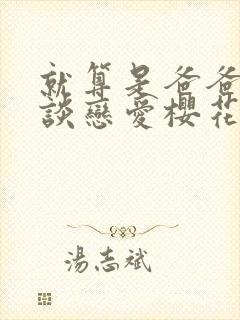 就算是爸爸
談戀愛櫻花
湯志斌